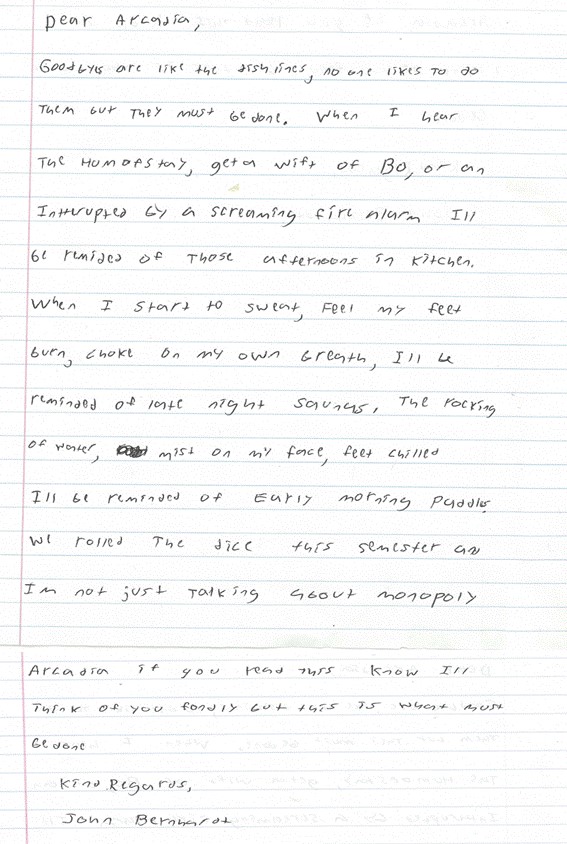 Dear Arcadia,
Goodbyes are like the dish lines, no one likes to do
Them but they must be done. When I hear
The Hum of stay, get a wift of Bo, or an
Interupted by a screaming fire alarm Ill
be remided of Those afternoons in kitchen.
When I start to sweat, Feel my feet
burn, choke on my own breath, Ill be
reminded of late night saunas, The rocking
of water, mist on my face, feet chilled
Ill be reminded of Early morning paddle.
We rolled The dice this semester an
Im not just Talking about monopoly
Arcadia if you read this know Ill
Think of you fondly but this is what must
be done
Kind Regards,
John Bernhardt